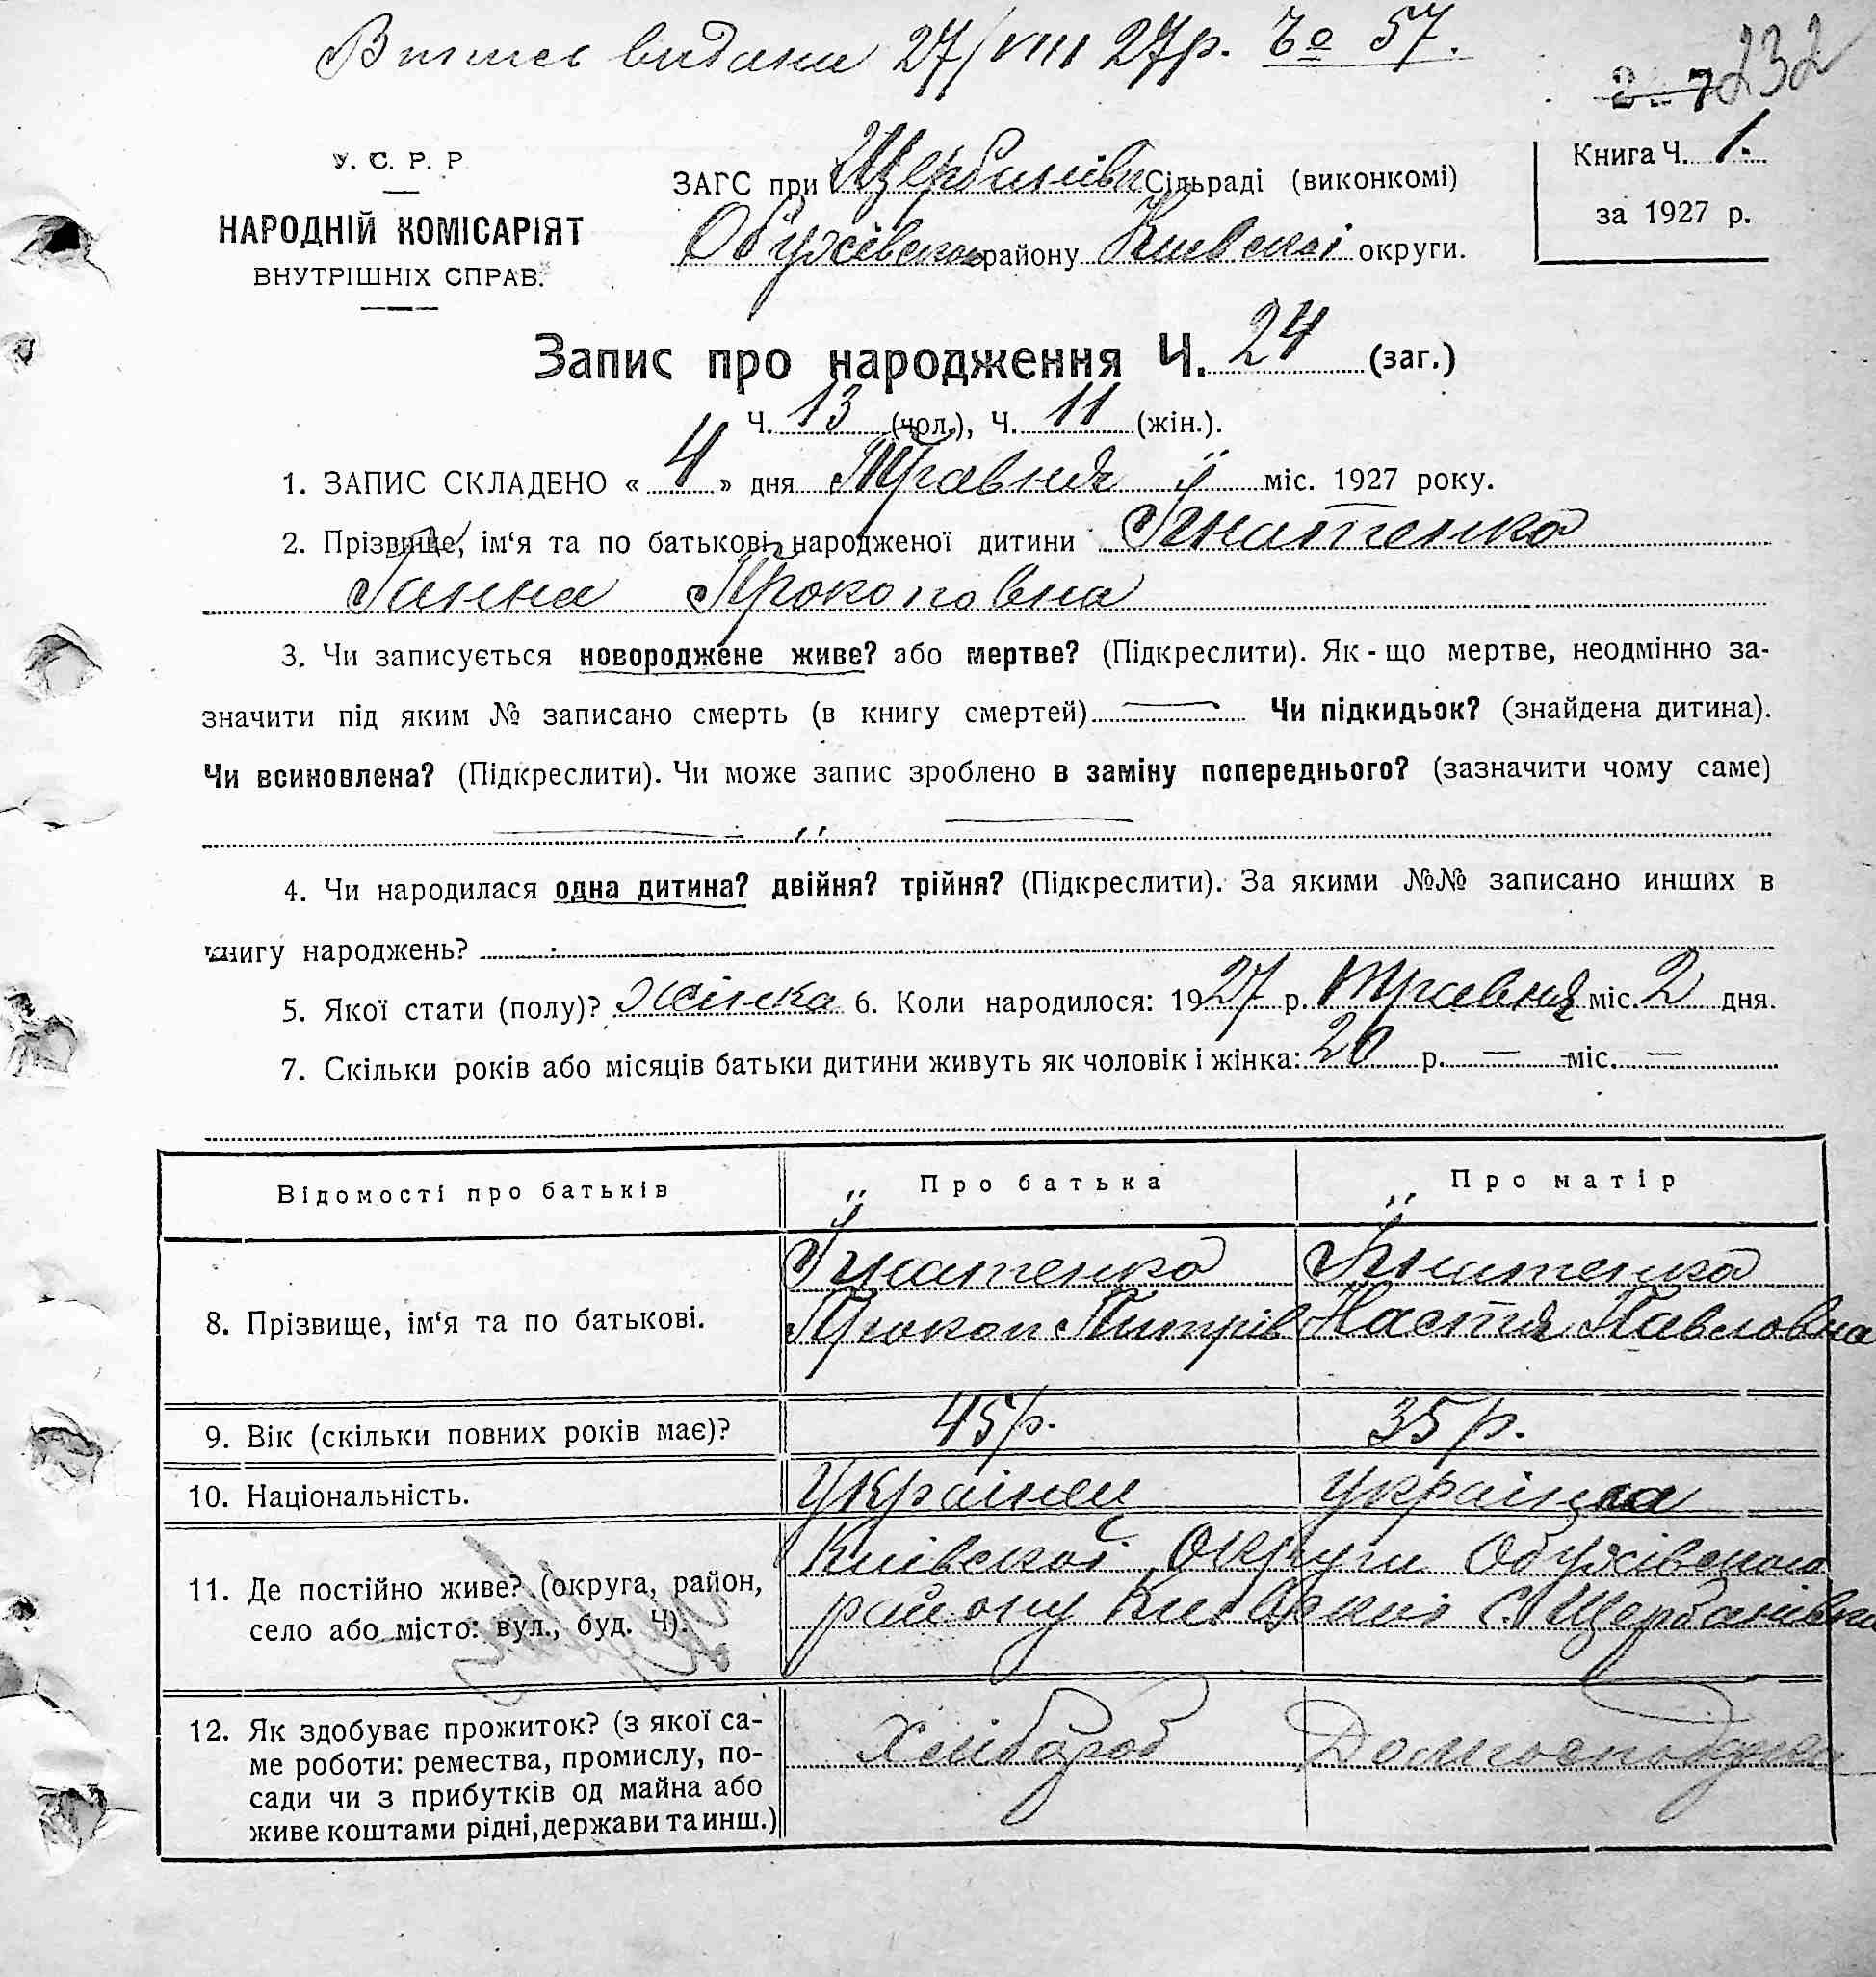 Випись видана 27/VIII 27р. № 57.
232
У. С. Р. Р.
НАРОДНІЙ КОМІСАРІЯТ
ВНУТРІШНІХ СПРАВ.
ЗАГС при Щербанівс Сільраді (виконкомі)
Обухівског району Киевскоі округи.
Книга Ч. 1.
за 1927 р.
Запис про народження Ч. 24 (заг.)
Ч. 13 (чол.), Ч. 11 (жін.).
1. ЗАПИС СКЛАДЕНО « 4 » дня Травня міс. 1927 року.
2. Прізвище, ім‘я та по батькові народженої дитини Ігнатенко
Ганна Прокоповна
3. Чи записується новороджене живе? або мертве? (Підкреслити). Як-що мертве, неодмінно за-
значити під яким № записано смерть (в книгу смертей) Чи підкидьок? (знайдена дитина).
Чи всиновлена? (Підкреслити). Чи може запис зроблено в заміну попереднього? (зазначити чому саме)
4. Чи народилася одна дитина? двійня? трійня? (Підкреслити). За якими №№ записано инших в
книгу народжень?
5. Якої стати (полу)? жінка 6. Коли народилося: 1927 р. Травня міс. 2 дня.
7. Скільки років або місяців батьки дитини живуть як чоловік і жінка: 20 р. — міс. —
Відомості про батьків Про батька Про матір
Ігнатенко Ігнатенко
8. Прізвище, ім‘я та по батькові. Прокоп Питрів Настя Павловна
9. Вік (скільки повних років має)? 45 р. 35 р.
10. Національність. Українец українка
Київскої округи Обухівского
11. Де постійно живе? (округа, район, району с. Щербанівки
село або місто: вул., буд. Ч).
12. Як здобуває прожиток? (з якої са- Хлібороб Домгосподарка
ме роботи: ремества, промислу, по-
сади чи з прибутків од майна або
живе коштами рідні, держави та инш.)